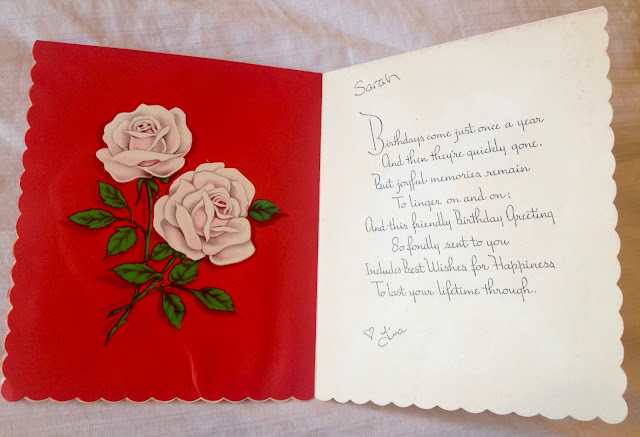 Sarah
Birthdays come just once a year
And then they're quickly gone,
But joyful memories remain
To linger on and on;
And this friendly Birthday Greeting
So fondly sent to you
Includes Best Wishes for Happiness
To last your lifetime through.
♡ Lisa